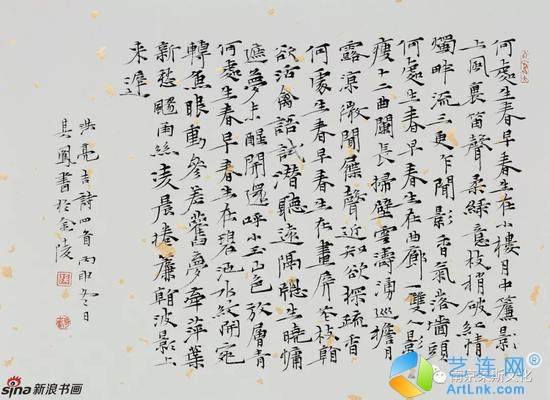 何處生春早春生在小樓月中簾影
上風裏笛聲柔綠意枝梢破紅情
燭畔流三更乍聞影香氣落墻頭
何處生春早春生在曲廊一雙影
瘦十二曲闌長掃壁雲濤湧巡檐月
露涼微聞屧聲近知欲探疏香
何處生春早春生在畫屏枝翰
欲活禽語試潛聽遠隔生曉慵
遮夢未醒開還呼小玉山色放層青
何處生春早春生在碧池水紋開宛
轉魚眼動參差舊夢牽萍葉
新愁颺雨絲凌晨捲簾翰波影上
来遲
洪亮吉詩四首丙申冬日
其鳳書於金陵
sina新浪书画
南京莱斯文化
艺连网
ArtLnk.com